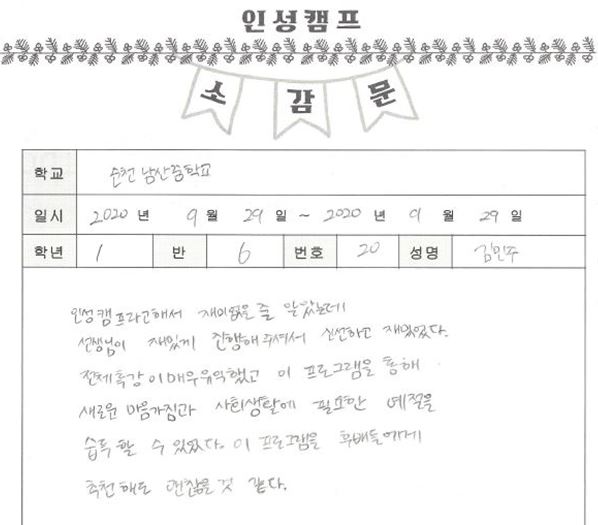 인성캠프
소감문
학교 순천 남산중학교
일시 2020 년 9 월 29 일 ~ 2020 년 9 월 29 일
학년 1 반 6 번호 20 성명 김민주
인성캠프라고해서 재미없을 줄 알았는데
선생님이 재밌게 진행해주셔서 신선하고 재밌었다.
전체특강이매우유익했고 이 프로그램을 통해
새로운 마음가짐과 사회생활에 필요한 예절을
습득 할 수 있었다. 이 프로그램을 후배들에게
추천해도 괜찮을것 같다.